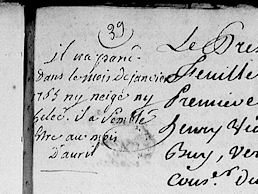 39
il na paru
dans le mois de janvier
1755 ny neigé ny
gelée. il a semblé
être au mois
D'avril
Le Pres
feuille
Premiere
henry
Buy, ver
Cons.er du